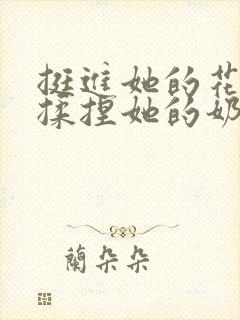 挺進她的花
揉捏她的奶
蘭朵朵